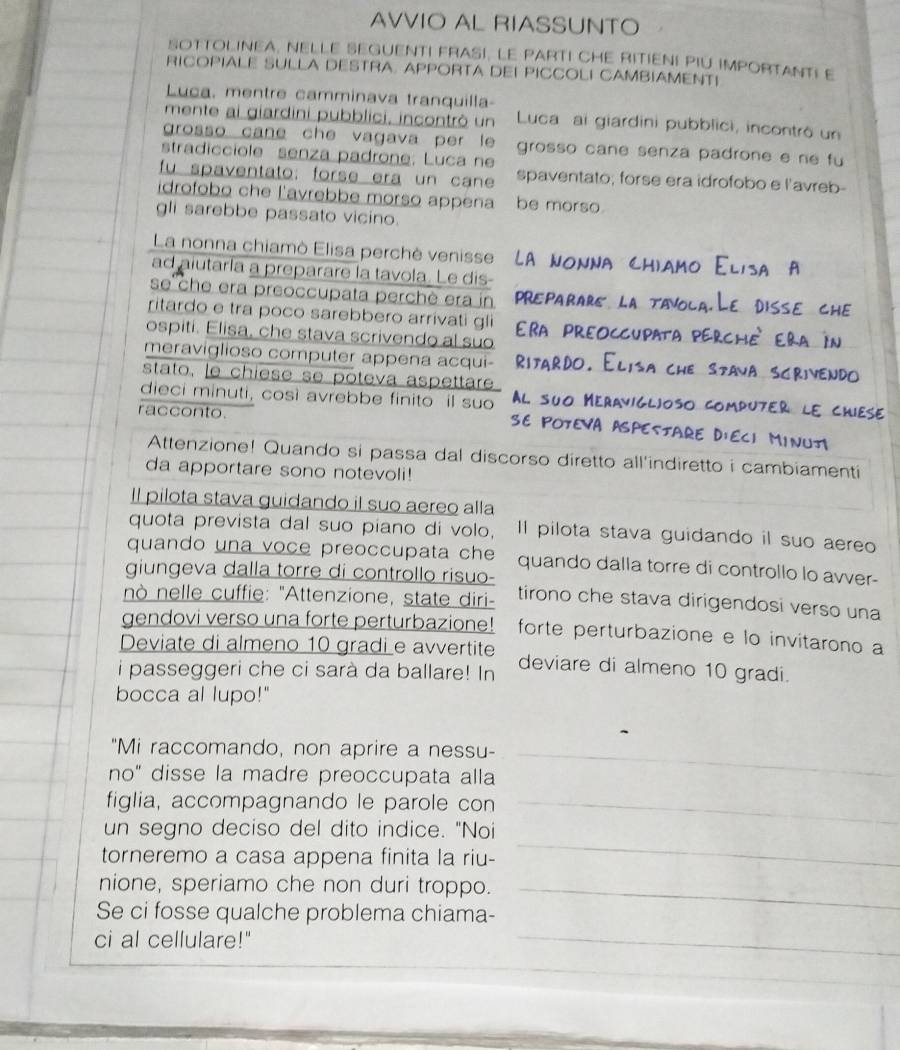 AVVIO AL RIASSUNTO
SOTTOLINEA, NELLE SEGUENTI FRASI, LE PARTI CHE RITIENI PIÙ IMPORTANTI E
RICOPIALE SULLA DESTRA. APPORTA DEI PICCOLI CAMBIAMENTI
Luca, mentre camminava tranquilla-
mente ai giardini pubblici, incontrò un
grosso cane che vagava per le
stradicciole senza padrone; Luca ne
fu spaventato; forse era un cane
idrofobo che l'avrebbe morso appena
gli sarebbe passato vicino.
Luca ai giardini pubblici, incontrò un
grosso cane senza padrone e ne fu
spaventato; forse era idrofobo e l'avreb-
be morso.
La nonna chiamò Elisa perchè venisse
ad aiutarla a preparare la tavola. Le dis-
se che era preoccupata perchè era in
ritardo e tra poco sarebbero arrivati gli
ospiti. Elisa, che stava scrivendo al suo
meraviglioso computer appena acqui-
stato, le chiese se poteva aspettare
dieci minuti, così avrebbe finito il suo
racconto.
LA NONNA CHIAMO ELISA A
PREPARARE LA TAVOLA. LE DISSE CHE
ERA PREOCCUPATA PERCHÈ ERA IN
RITARDO. ELISA CHE STAVA SCRIVENDO
AL SUO MERAVIGLIOSO COMPUTER LE CHIESE
SE POTEVA ASPETTARE DIECI MINUTI
Attenzione! Quando si passa dal discorso diretto all'indiretto i cambiamenti
da apportare sono notevoli!
Il pilota stava guidando il suo aereo alla
quota prevista dal suo piano di volo,
quando una voce preoccupata che
giungeva dalla torre di controllo risuo-
nò nelle cuffie: "Attenzione, state diri-
gendovi verso una forte perturbazione!
Deviate di almeno 10 gradi e avvertite
i passeggeri che ci sarà da ballare! In
bocca al lupo!"
Il pilota stava guidando il suo aereo
quando dalla torre di controllo lo avver-
tirono che stava dirigendosi verso una
forte perturbazione e lo invitarono a
deviare di almeno 10 gradi.
"Mi raccomando, non aprire a nessu-
no" disse la madre preoccupata alla
figlia, accompagnando le parole con
un segno deciso del dito indice. "Noi
torneremo a casa appena finita la riu-
nione, speriamo che non duri troppo.
Se ci fosse qualche problema chiama-
ci al cellulare!"